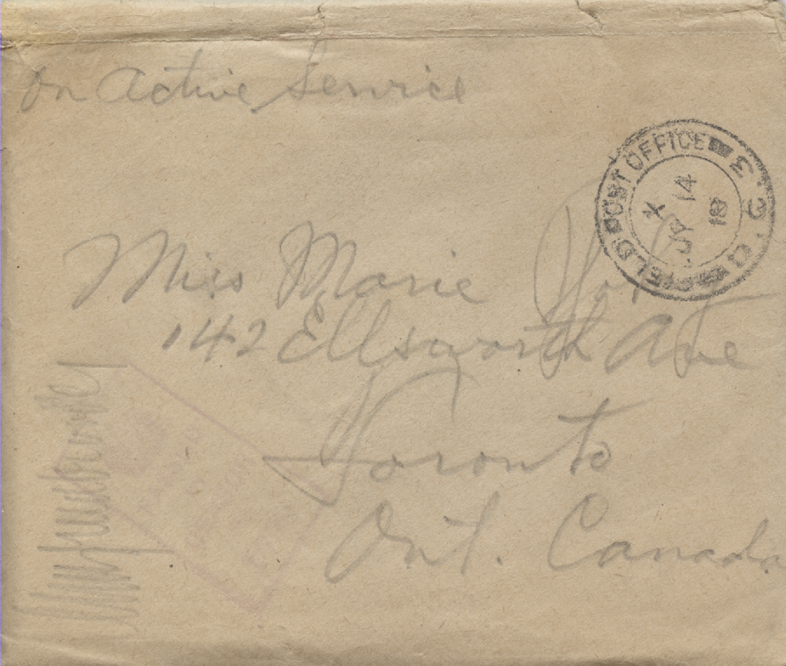 on Active Service
FIELD POST OFFICE
X
14
18
Miss Marie
142 Ellsworth Ave
Toronto
Ont. Canada